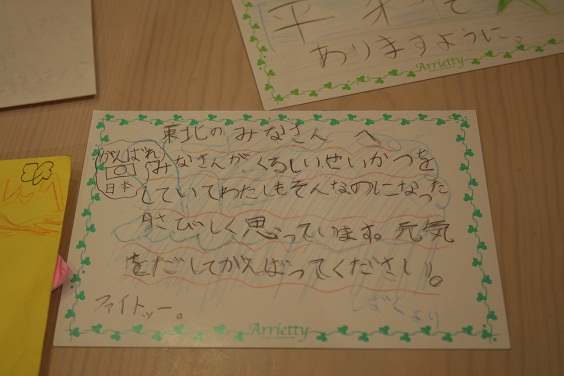 平和で
ありますように。
Arrietty
東北のみなさんへ
がんばれ
日本
みなさんがくるしいせいかつを
していてわたしもそんなのになった
時さびしく思っています。元気
をだしてがんばってください。
ファイトッー。
より
Arrietty